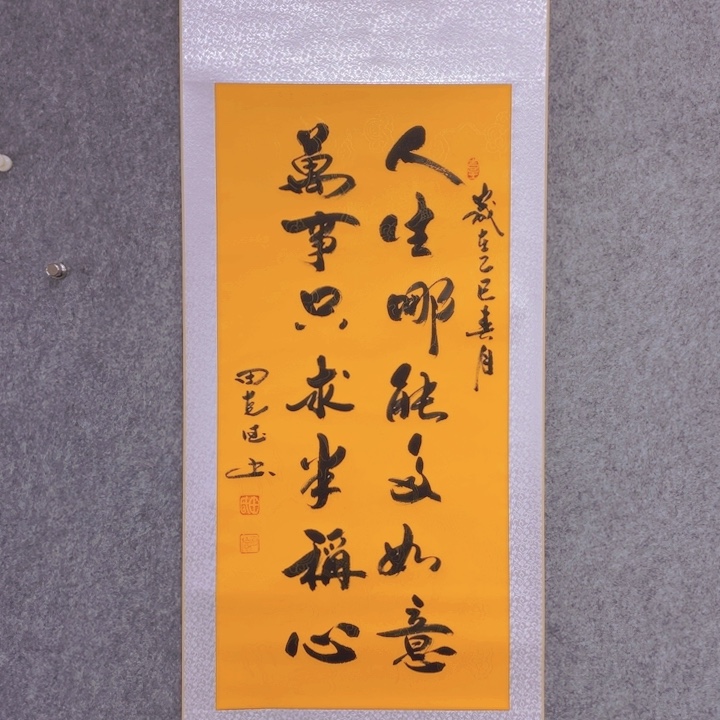 歲在乙巳春月
人生哪能多如意
萬事只求半稱心
田克德书